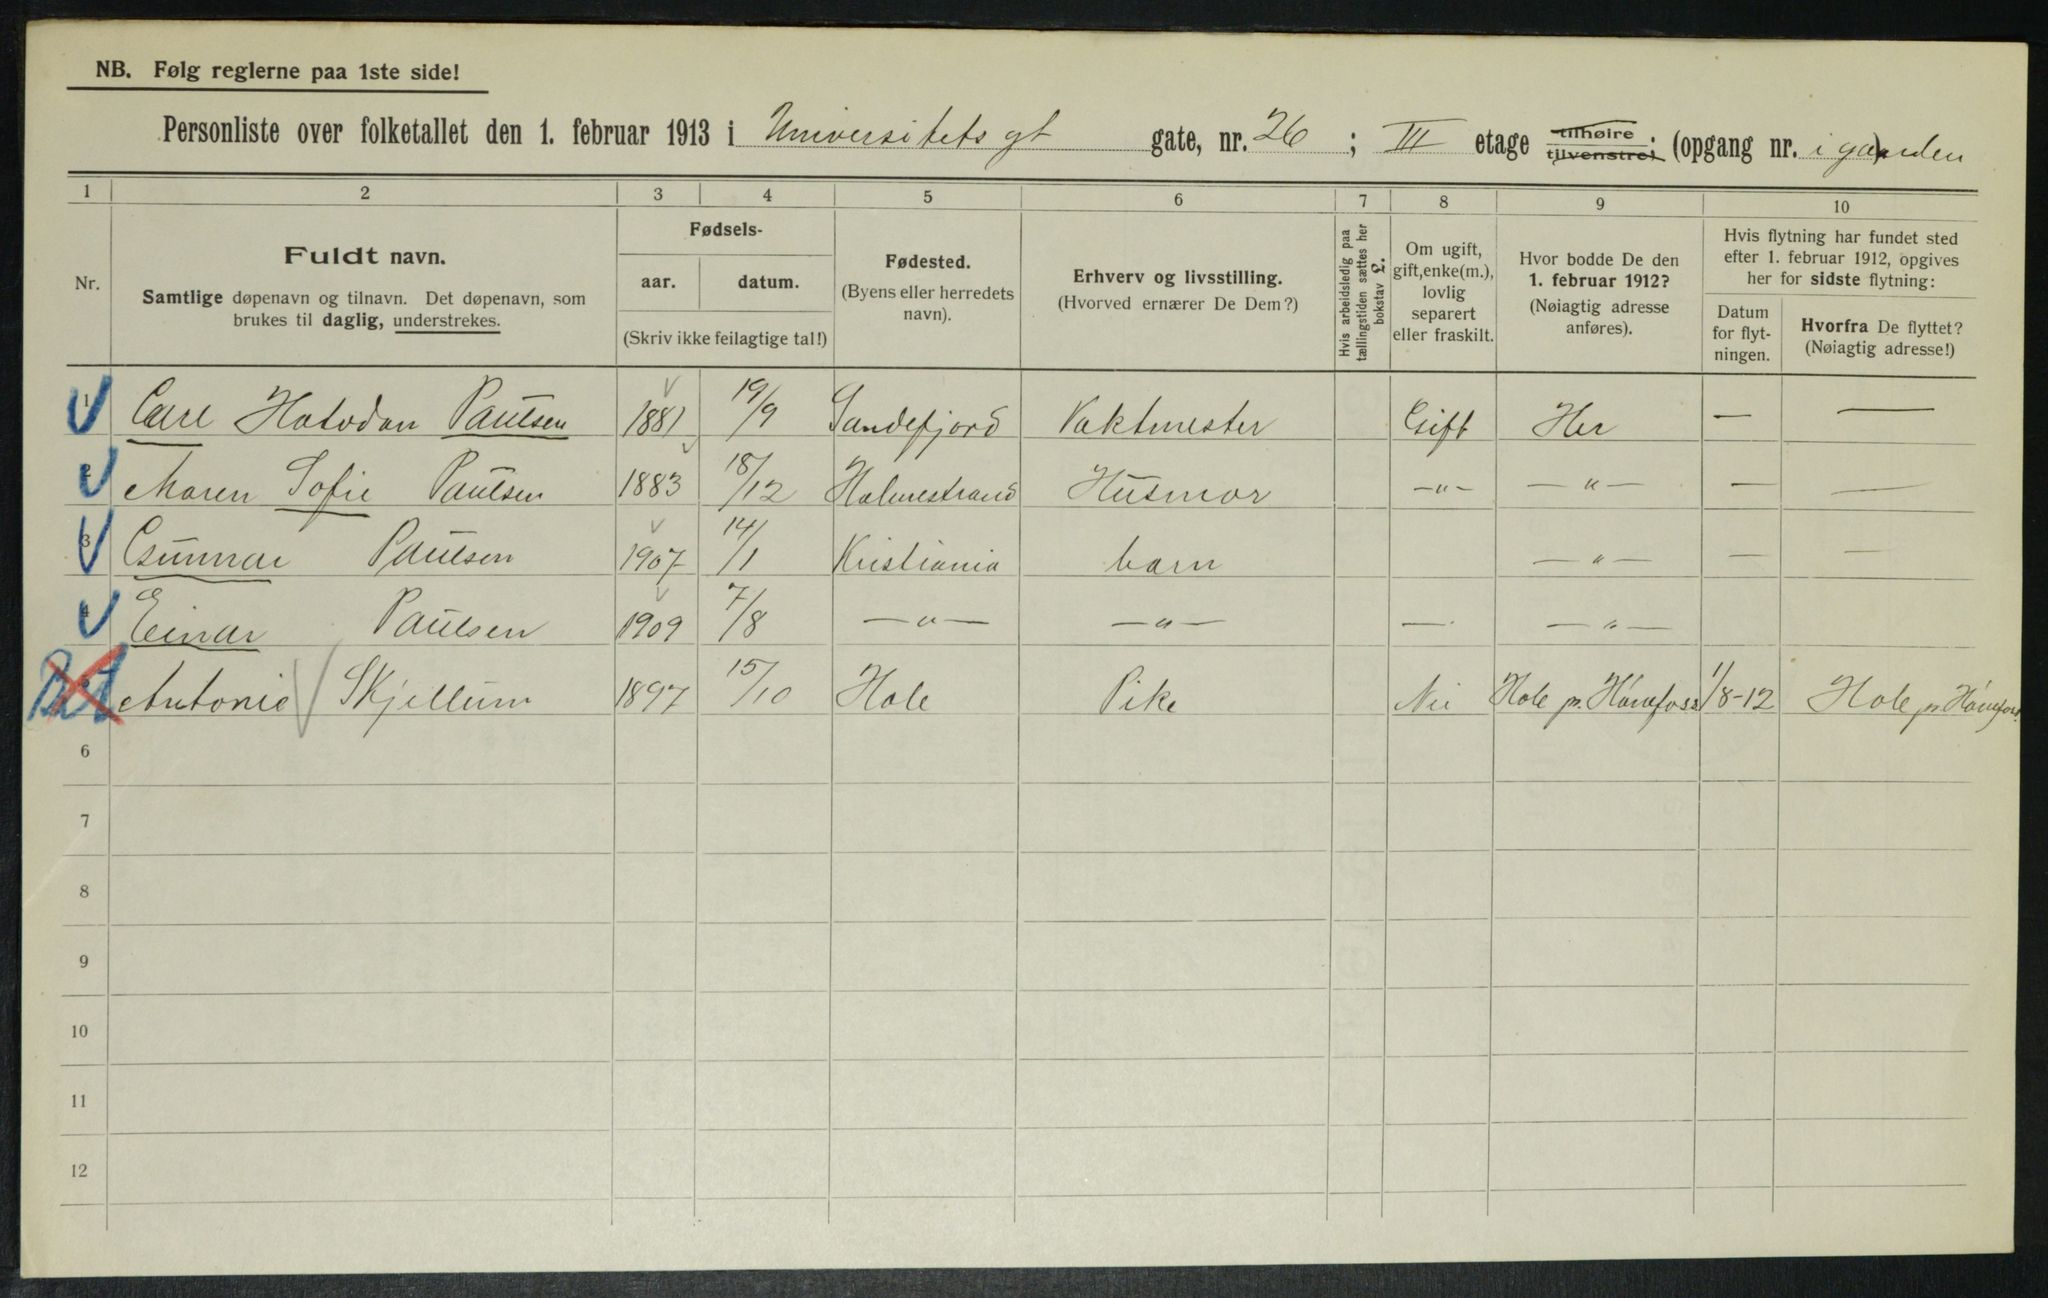 NB. Følg reglerne paa 1ste side!
Personliste over folketallet den 1. februar 1913 i Universitets gt gate, nr. 26 ; III etage tilhøire tilvenstre; (opgang nr. i gaarden
1 2 3 4 5 6 7 8 9 10
Nr.
Fuldt navn.
Samtlige døpenavn og tilnavn. Det døpenavn, som
brukes til daglig, understrekes.
Fødsels-
aar. datum.
(Skriv ikke feilagtige tal!)
Fødested.
(Byens eller herredets
navn).
Erhverv og livsstilling.
(Hvorved ernærer De Dem?)
Hvis arbeidsledig paa
tællingstiden sættes her
bokstav L.
Om ugift,
gift, enke(m.),
lovlig
separert
eller fraskilt.
Hvor bodde De den
1. februar 1912?
(Nøiagtig adresse
anføres).
Hvis flytning har fundet sted
efter 1. februar 1912, opgives
her for sidste flytning:
Datum
for flyt-
ningen.
Hvorfra De flyttet?
(Nøiagtig adresse!)
1 Carl Paulsen 1881 19/9 Sandefjord Vaktmester Gift Her — —
2 Maren Sofie Paulsen 1883 18/12 Holmestrand Husmor —"— —"— — —
3 Gunnar Paulsen 1907 14/1 Kristiania barn —"— — —
4 Einar Paulsen 1909 7/8 —"— —"— — —"—
Antonie Skjellum 1897 15/10 Hole Pike Hole pr. Hønefoss 1/8-12 Hole pr Hønefoss
6
7
8
9
10
11
12